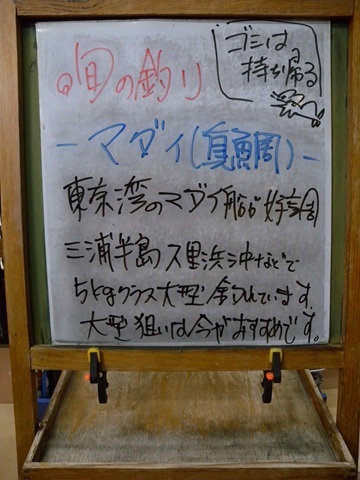 旬の釣り
ゴミは
持ち帰る
-マダイ(真鯛)-
東京湾のマダイ船が好調
三浦半島久里浜沖などで
5kgクラス大型含んでいます。
大型狙いは今がおすすめです。